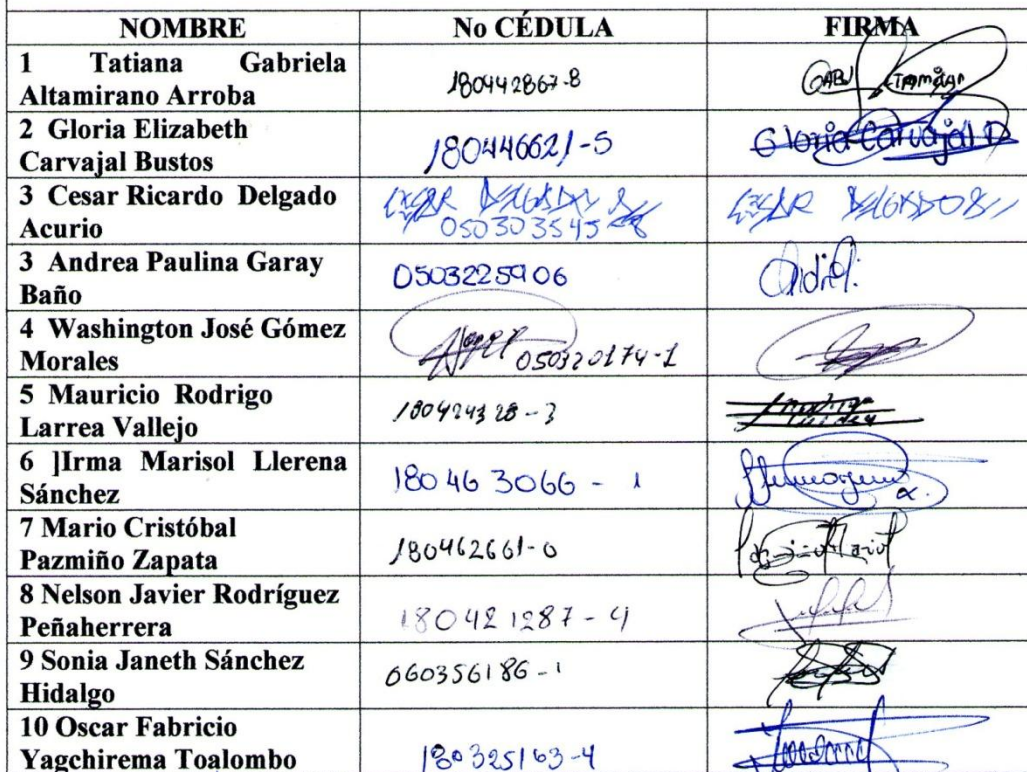 NOMBRE No CÉDULA FIRMA
1 Tatiana Gabriela
Altamirano Arroba
180442867-8
2 Gloria Elizabeth
Carvajal Bustos
180446621-5
Gloria Carvajal D
3 Cesar Ricardo Delgado
Acurio
CESAR DELGADO
050303545-8
CESAR DELGADO
3 Andrea Paulina Garay
Baño
0503225906
4 Washington José Gómez
Morales
050320174-1
5 Mauricio Rodrigo
Larrea Vallejo
180424328-3
6 ]Irma Marisol Llerena
Sánchez
180463066-1
7 Mario Cristóbal
Pazmiño Zapata
180462661-0
8 Nelson Javier Rodríguez
Peñaherrera
180421287-4
9 Sonia Janeth Sánchez
Hidalgo
060356186-1
10 Oscar Fabricio
Yagchirema Toalombo
180325163-4